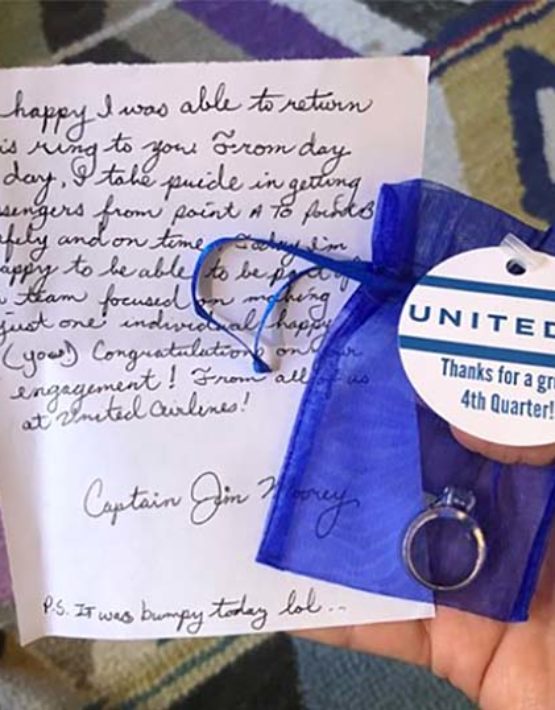 happy I was able to return
is ring to you! From day
day, I take puide in getting
sengers from point A To point B
fely and on time. Today I'm
appy to be able to be part of
a team focused on making
just one individual happy
(you!) Congratulations on your
engagement! From all of us
at United Airlines!
Captain Jim Moorey
P.S. It was bumpy today lol...
UNITED
Thanks for a gr
4th Quarter!